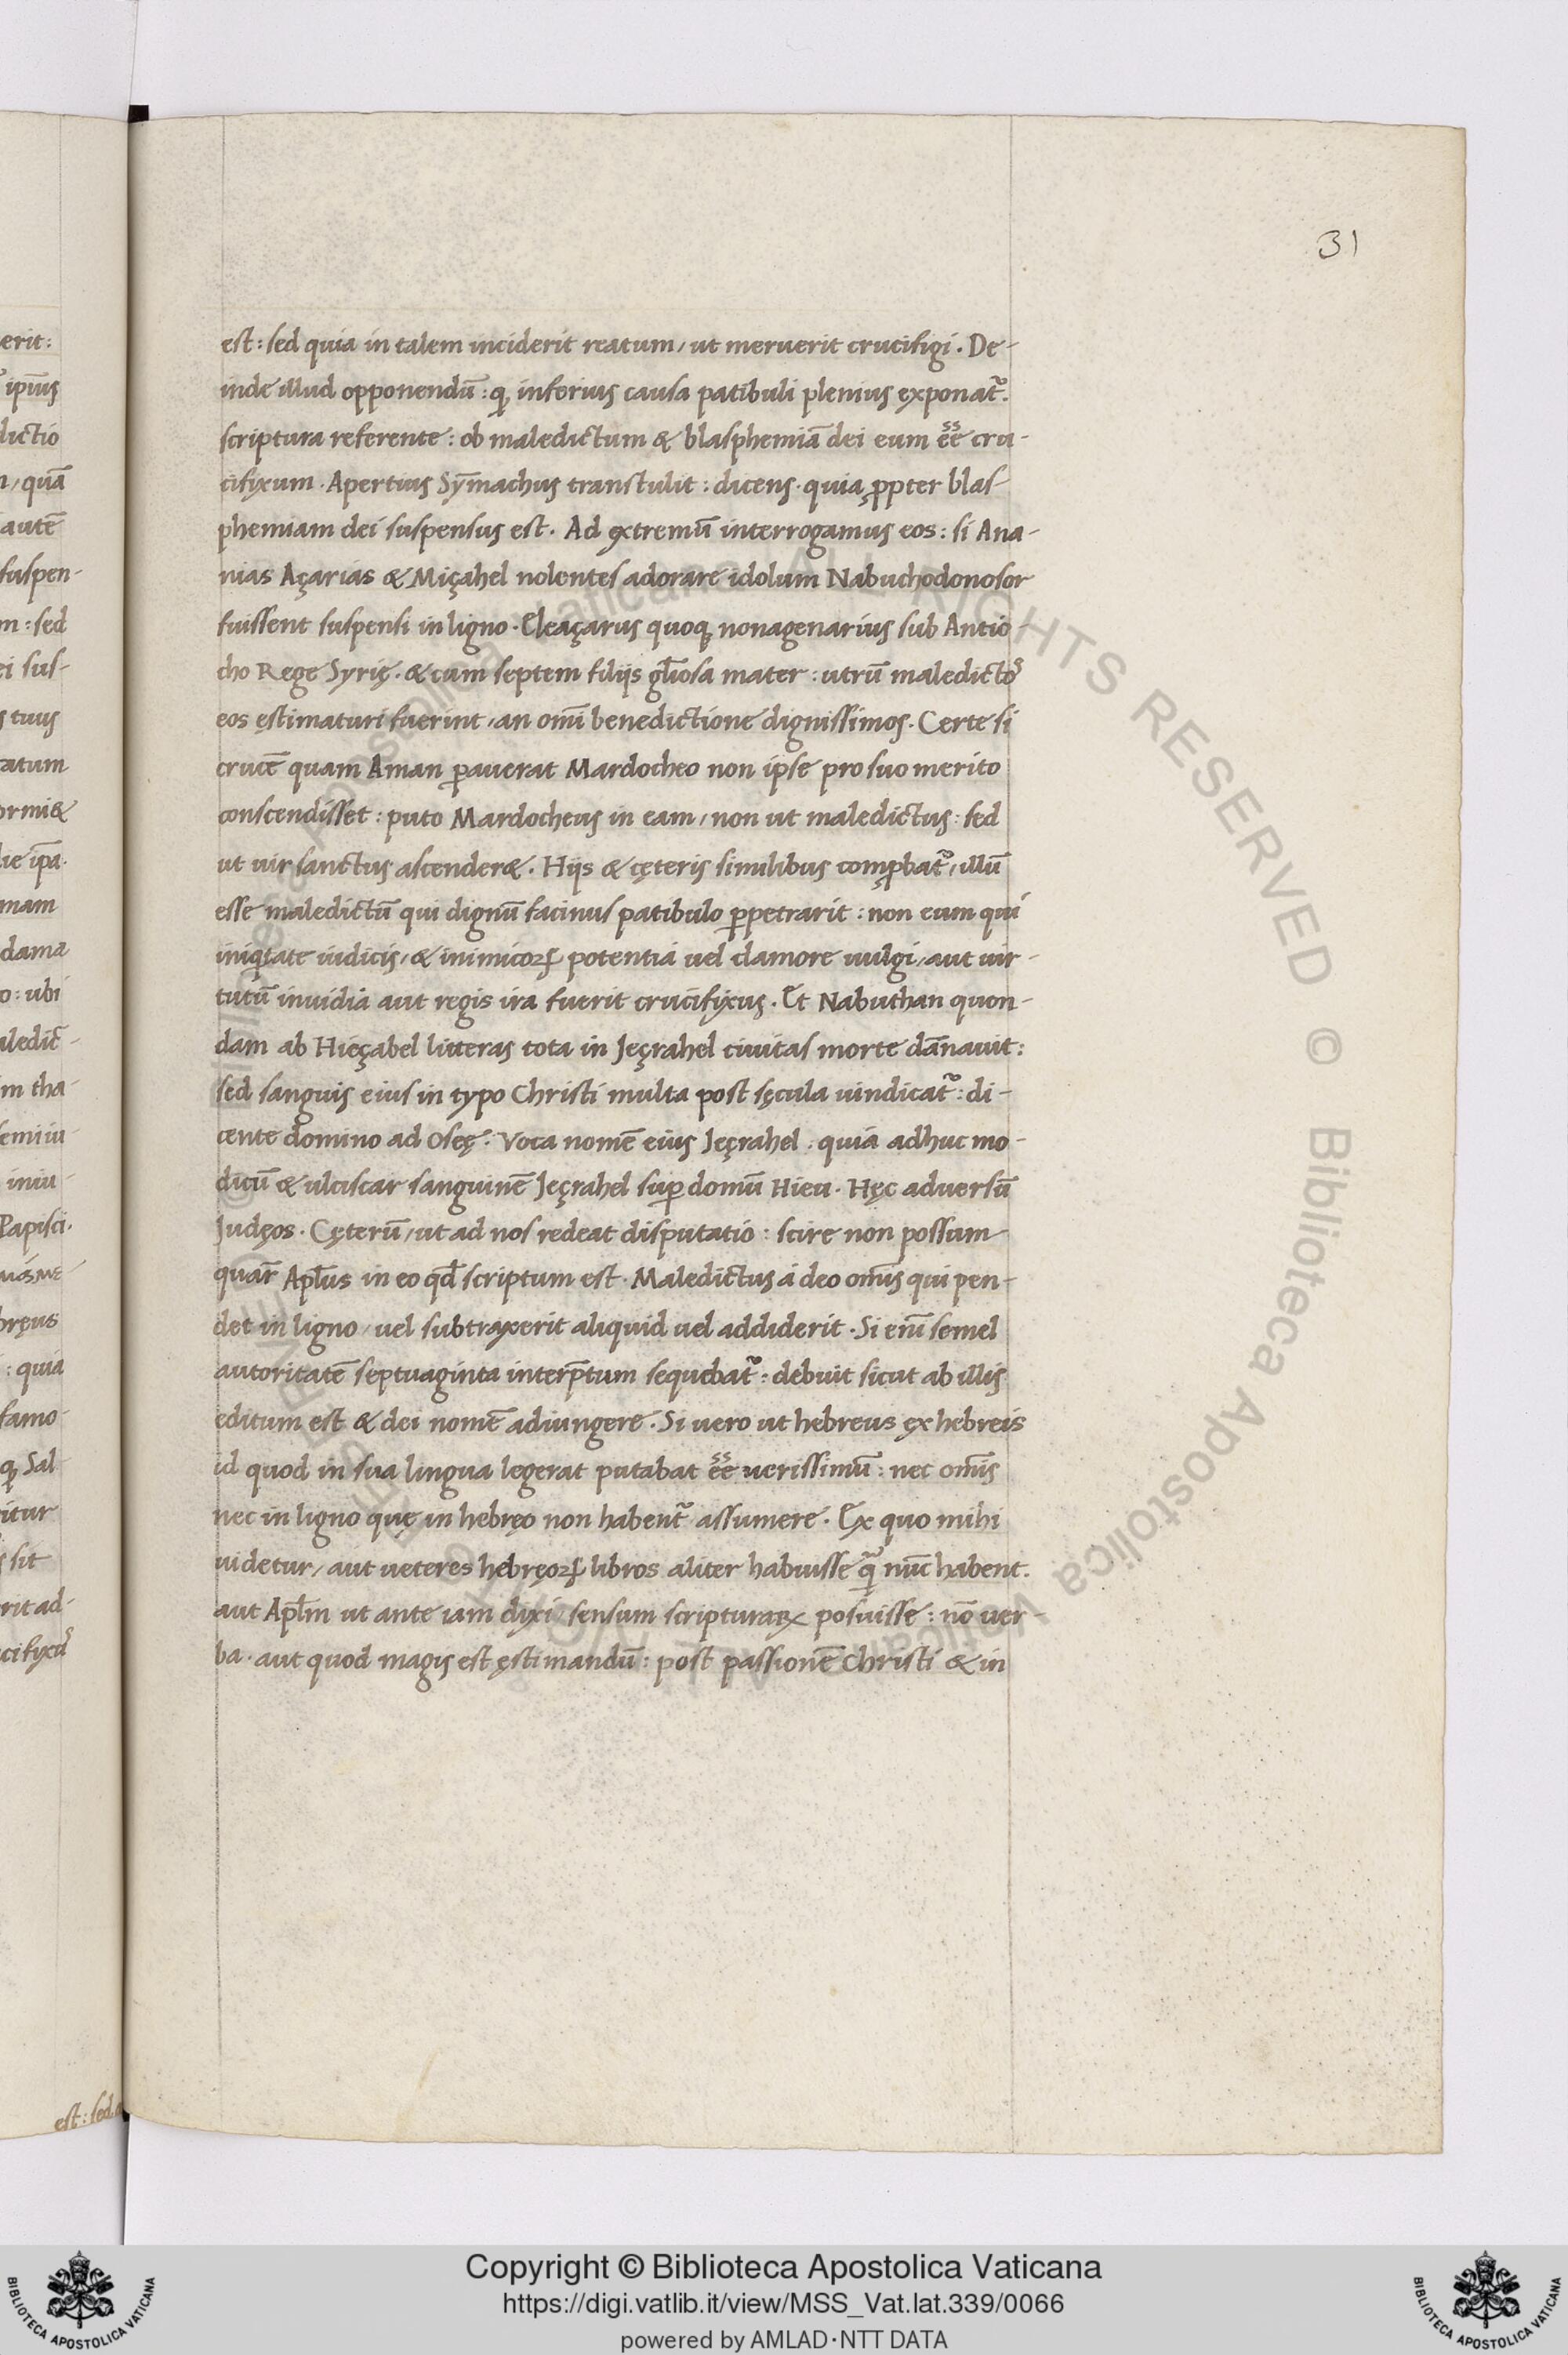 31
est: sed quia in talem inciderit reatum, ut meruerit crucifigi. De-
inde illud opponendū: qꝫ inferius causa patibuli plenius exponat᷑.
scriptura referente: ob maledictum & blasphemiā dei eum ēē cru-
cifixum. Apertius Sȳmachus transtulit: dicens. quia ꝓpter blas-
phemiam dei suspensus est. Ad extremū interrogamus eos: si Ana-
nias Açarias & Miçahel nolentes adorare idolum Nabuchodonosor
fuissent suspensi in ligno. Eleaçarus quoqꝫ nonagenarius sub Antio-
cho Rege Syrię. & cum septem filijs gl̄iosa mater: utrū maledictoˢ
eos ęstimaturi fuerint, an omī benedictione dignissimos. Certe si
crucē quam Aman p̄auerat Mardocheo non ipse pro suo merito
conscendisset: puto Mardocheus in eam, non ut maledictus: sed
ut uir sanctus ascender&. Hijs & cęteris similibus comꝓbat᷑, illū
esse maledictū qui dignū facinus patibulo ꝑpetrarit: non eum qui
iniqͥtate iudicis, & inimicoꝝ potentia uel clamore uulgi, aut uir-
tutū inuidia aut regis ira fuerit crucifixus. Et Nabuthan quon-
dam ab Hieçabel litteras tota in Jeçrahel ciuitas morte dānauit:
sed sanguis eius in typo Christi multa post sęcula uindicat᷑: di-
cente domino ad Oseę. Voca nomē eius Jeçrahel: quia adhuc mo-
dicū & ulciscar sanguinē Jeçrahel suꝑ domū Hieu. Hęc aduersū
Judęos. Cęterū, ut ad nos redeat disputatio: scire non possum
quar̄ Apl̄us in eo qd̄ scriptum est. Maledictus a deo om̄is qui pen-
det in ligno, uel subtraxerit aliquid uel addiderit. Si enī semel
autoritatē septuaginta interp̄tum sequebat᷑: debuit sicut ab illis
editum est & dei nomē adiungere. Si uero ut hebreus ex hebreis
id quod in sua lingua legerat putabat ēē uerissimū: nec om̄is
nec in ligno quę in hebręo non habent᷑ assumere. Ex quo mihi
uidetur, aut ueteres hebręoꝝ libros aliter habuisse qᷓ nūc habent.
aut Apl̄m ut ante iam dixi, sensum scripturaꝝ posuisse: nō uer-
ba. aut quod magis est ęstimandū: post passionē Christi & in
erit:
ip̄ius
dictio
quā
autē
suspen-
sed
sus-
tuus
mam
ubi
tha-
Papisci.
quia
qꝫ Sal
sit
est: sed
© Biblioteca Apostolica Vaticana
ALL RIGHTS RESERVED
Copyright © Biblioteca Apostolica Vaticana
https://digi.vatlib.it/view/MSS_Vat.lat.339/0066
powered by AMLAD·NTT DATA
BIBLIOTECA APOSTOLICA VATICANA
BIBLIOTECA APOSTOLICA VATICANA